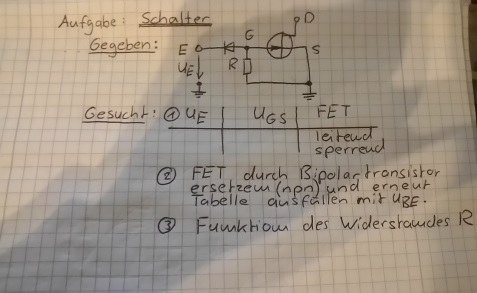 Aufgabe: Schalter
Gegeben:
E
UE
R
G
D
S
Gesucht: ① UE UGS FET
leitend
sperrend
② FET durch Bipolartransistor
ersetzen (npn) und erneut
Tabelle ausfüllen mit UBE.
③ Funktion des Widerstandes R